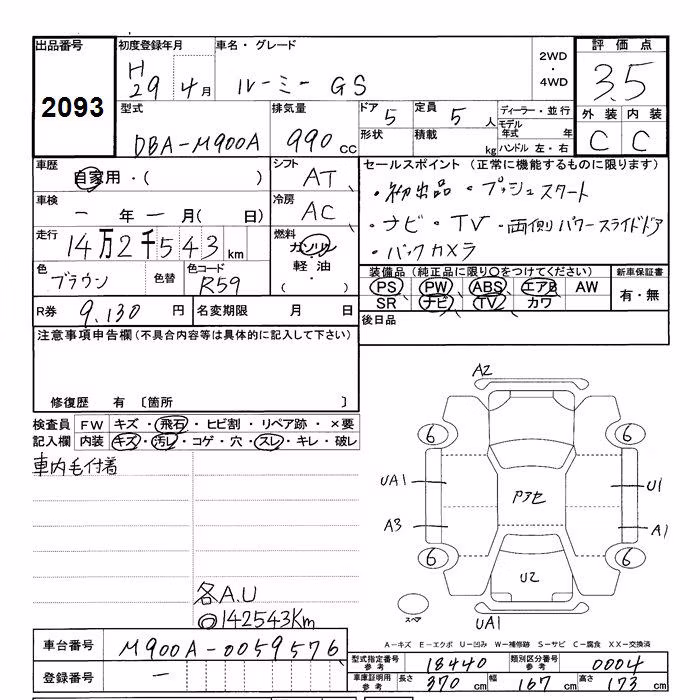 出品番号 初度登録年月 車名・グレード 2WD ・ 4WD 評価点
2093 H29 4月 ルーミー GS 3.5
外装 内装
C C
型式 排気量 ドア 5 定員 5人 ディーラー・並行
DBA-M900A 990cc 形状 積載 kg モデル年式 年
ハンドル 左・右
車歴 自家用・( ) シフト AT セールスポイント (正常に機能するものに限ります)
・初出品 ・プッシュスタート
車検 一年一月( 日) 冷房 AC ・ナビ・TV・両側パワースライドドア
走行 14万2千543km 燃料 ガソリン ・バックカメラ
・軽油・
( )
色 ブラウン 色替 色コード R59
装備品 (純正品に限り○をつけてください) 新車保証書
PS PW ABS エアB AW 有・無
SR ナビ TV カワ
R券 9,130円 名変期限 月 日 後日品
注意事項申告欄(不具合内容等は具体的に記入して下さい)
修復歴 有 〔箇所 〕
検査員 FW キズ・飛石・ヒビ割・リペア跡・×要
記入欄 内装 キズ・汚レ・コゲ・穴・スレ・キレ・破レ
車内毛付着
各A.U
◎142543Km
A2
6 6
UA1 U1
Pアセ
A3 A1
6 6
U2
スペア
UA1
A−キズ E−エクボ U−凹み W−補修跡 S−サビ C−腐食 XX−交換済
車台番号 M900A-0059576
登録番号 −
型式指定番号 参考 18440 類別区分番号 参考 0004
車庫証明用 参考 長さ 370cm 幅 167cm 高さ 173cm